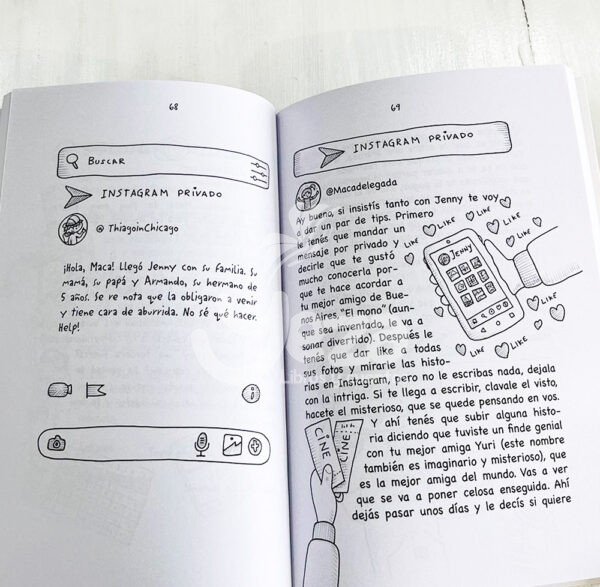 68
BUSCAR
INSTAGRAM PRIVADO
@ ThiagoinChicago
¡Hola, Maca! Llegó Jenny con su familia. Su
mamá, su papá y Armando, su hermano de
5 años. Se re nota que la obligaron a venir
y tiene cara de aburrida. No sé qué hacer.
Help!
69
INSTAGRAM PRIVADO
@Macadelegada
Ay bueno, si insistís tanto con Jenny te voy
a dar un par de tips. Primero
le tenés que mandar un
mensaje por privado y
decirle que te gustó
mucho conocerla por-
que te hace acordar a
tu mejor amigo de Bue-
nos Aires, "El mono" (aun-
que sea inventado, le va a
sonar divertido). Después le
tenés que dar like a todas
sus fotos y mirarle las histo-
rias en Instagram, pero no le escribas nada, dejala
con la intriga. Si te llega a escribir, clavale el visto,
hacete el misterioso, que se quede pensando en vos.
Y ahí tenés que subir alguna histo-
ria diciendo que tuviste un finde genial
con tu mejor amiga Yuri (este nombre
también es imaginario y misterioso), que
es la mejor amiga del mundo. Vas a ver
que se va a poner celosa enseguida. Ahí
dejás pasar unos días y le decís si quiere
LIKE
LIKE
LIKE
LIKE
JENNY
LIKE
LIKE
LIKE
CINE
CINE